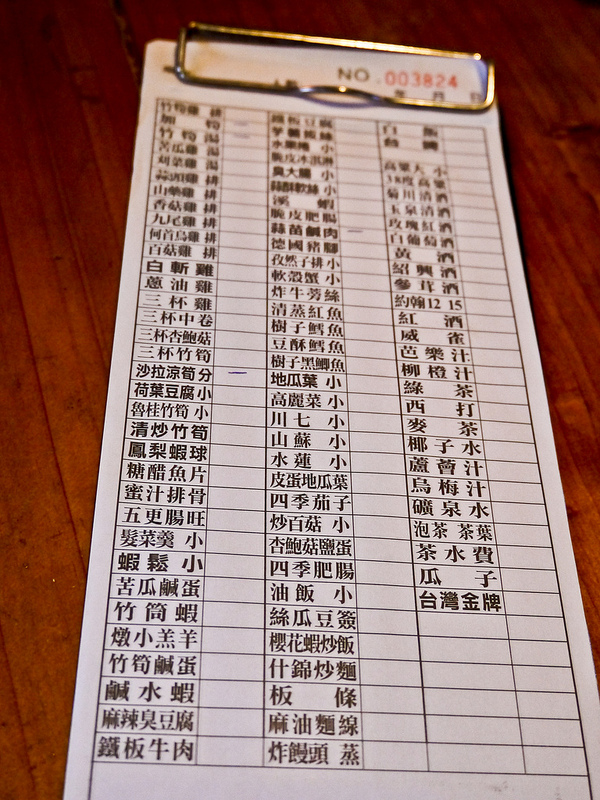 NO. 003824
年 月 日
竹筍雞 排
加 筍
竹筍湯
苦瓜雞 湯
刈菜雞 湯
蒜頭雞 排
山藥雞 排
香菇雞 排
九尾雞 排
何首烏雞 排
百菇雞 排
白斬雞
蔥油雞
三杯雞
三杯中卷
三杯杏鮑菇
三杯竹筍
沙拉涼筍分
荷葉豆腐小
魯桂竹筍 小
清炒竹筍
鳳梨蝦球
糖醋魚片
蜜汁排骨
五更腸旺
髮菜羹 小
蝦鬆 小
苦瓜鹹蛋
竹筒蝦
燉小羔羊
竹筍鹹蛋
鹹水蝦
麻辣臭豆腐
鐵板牛肉
鐵板豆腐
水果捲 小
脆皮冰淇淋
臭大腸 小
蒜酥軟絲 小
溪 蝦
脆皮肥腸
蒜苗鹹肉
德國豬腳
孜然子排 小
軟殼蟹 小
炸牛蒡絲
清蒸紅魚
樹子鱈魚
豆酥鱈魚
樹子黑鯽魚
地瓜葉 小
高麗菜 小
川七 小
山蘇 小
水蓮 小
皮蛋地瓜葉
四季茄子
炒百菇 小
杏鮑菇鹽蛋
四季肥腸
油飯 小
絲瓜豆簽
櫻花蝦炒飯
什錦炒麵
板 條
麻油麵線
炸饅頭 蒸
白 飯
高粱大 小
38度高粱
菊川清酒
玉泉清酒
玫瑰紅酒
白葡萄酒
黃 酒
紹興酒
參茸酒
約翰12 15
紅 酒
威 雀
芭樂汁
柳橙汁
綠 茶
西 打
麥 茶
椰子水
蘆薈汁
烏梅汁
礦泉水
泡茶 茶葉
茶水費
瓜 子
台灣金牌